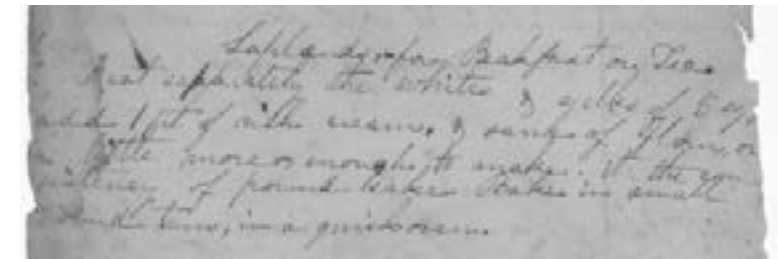 Laplands for Breakfast or Tea
Beat separately the whites & yelks of 5 eggs
add 1 pt of rich cream, & same of flour, or
a little more or enough to make it the con
sistency of pound cake. Bake in small
round tins, in a quick oven.